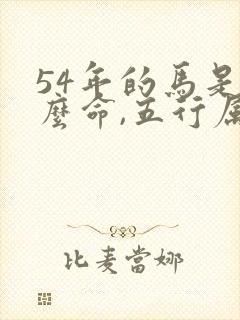 54年的馬是
麼命,五行屬
比麦當娜